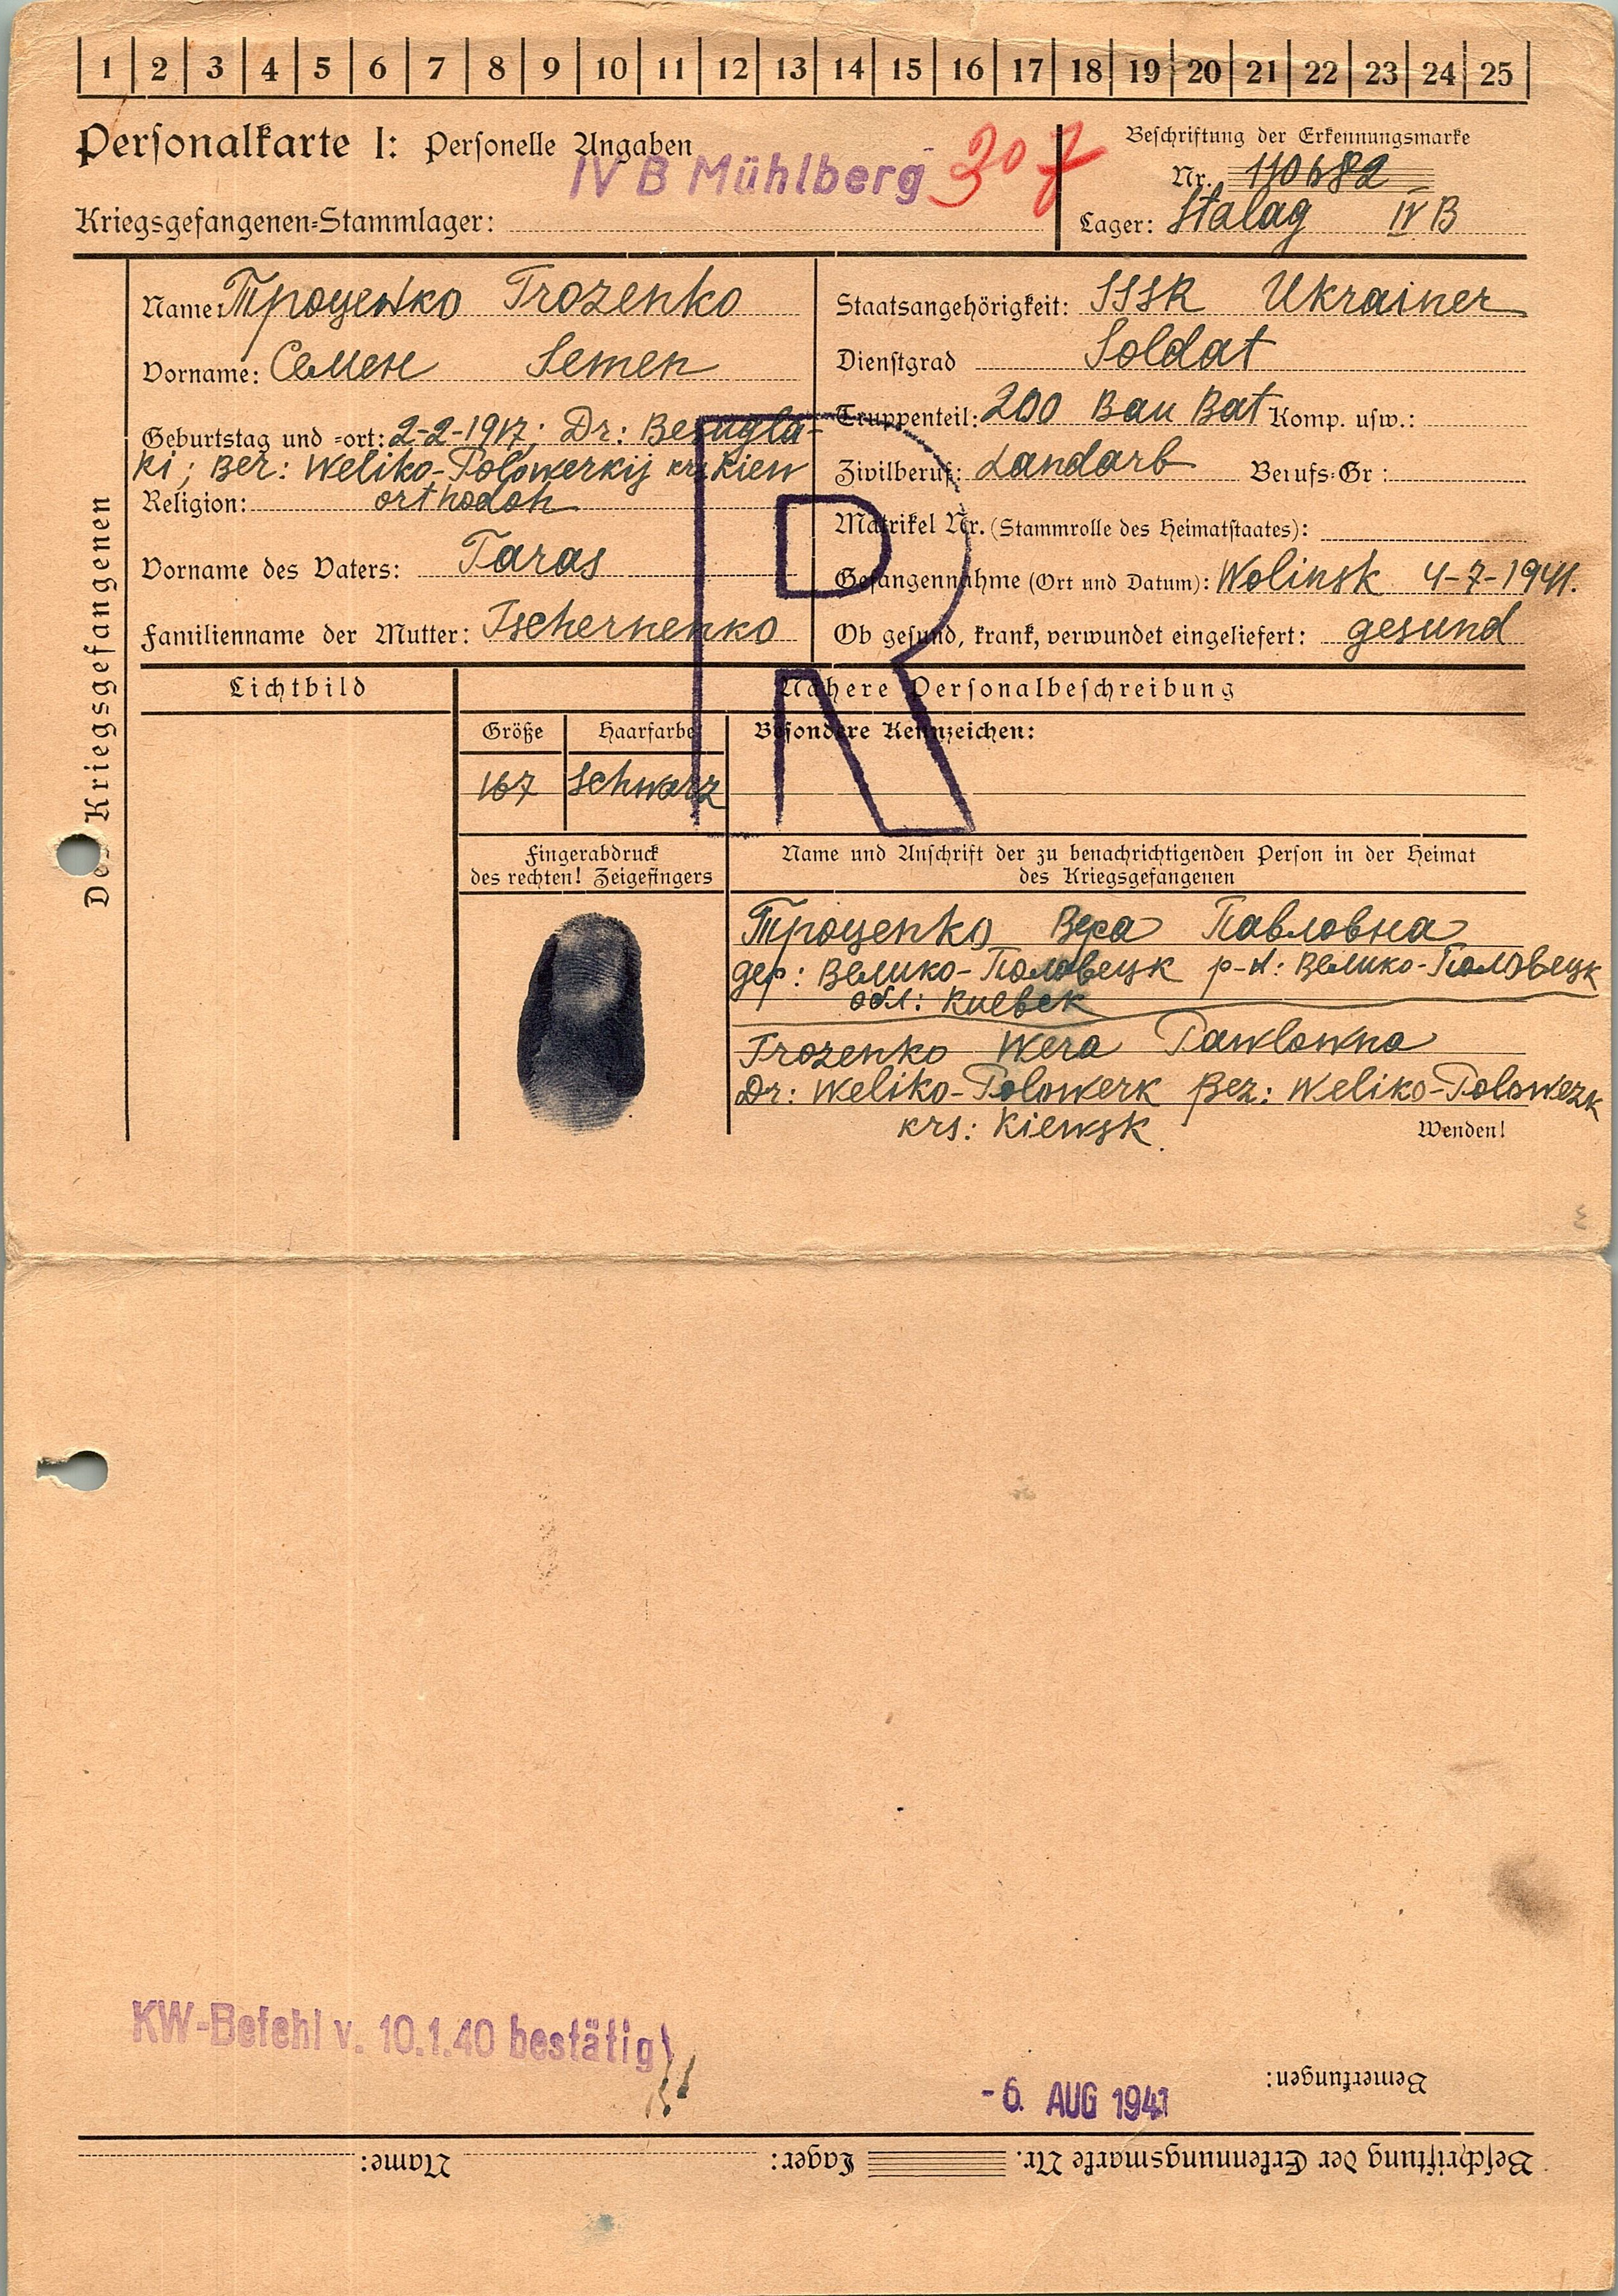 1 2 3 4 5 6 7 8 9 10 11 12 13 14 15 16 17 18 19 20 21 22 23 24 25
Personalkarte I: Personelle Angaben
IV B Mühlberg 307
Kriegsgefangenen-Stammlager:
Beschriftung der Erkennungsmarke
Nr. 110682
Lager: Stalag IV B
Des Kriegsgefangenen
Name: Троценко Trozenko
Vorname: Семен Semen
Geburtstag und -ort: 2-2-1917; Dr: Besugla-
ki; Bez: Weliko-Polowezkij krs Kiew
Religion: orthodoh
Vorname des Vaters: Taras
Familienname der Mutter: Tschernenko
Staatsangehörigkeit: SSSR Ukrainer
Dienstgrad Soldat
Truppenteil: 200 Bau Bat Komp. usw.:
Zivilberuf: Landarb Berufs-Gr:
Matrikel Nr. (Stammrolle des Heimatstaates):
Gefangennahme (Ort und Datum): Wolinsk 4-7-1941.
Ob gesund, krank, verwundet eingeliefert: gesund
R
Lichtbild
Nähere Personalbeschreibung
Größe Haarfarbe Besondere Kennzeichen:
167 schwarz
Fingerabdruck
des rechten! Zeigefingers
Name und Anschrift der zu benachrichtigenden Person in der Heimat
des Kriegsgefangenen
Троценко Вера Павловна
дер: Велико-Половецк р-н: Велико-Половецк
обл: Киевск
Trozenko Wera Pawlowna
Dr: Weliko-Polowezk Bez: Weliko-Polowezk
krs: Kiewsk.
Wenden!
KW-Befehl v. 10.1.40 bestätigt
Bemerkungen:
-6. AUG 1941
Beschriftung der Erkennungsmarke Nr. Lager: Name: